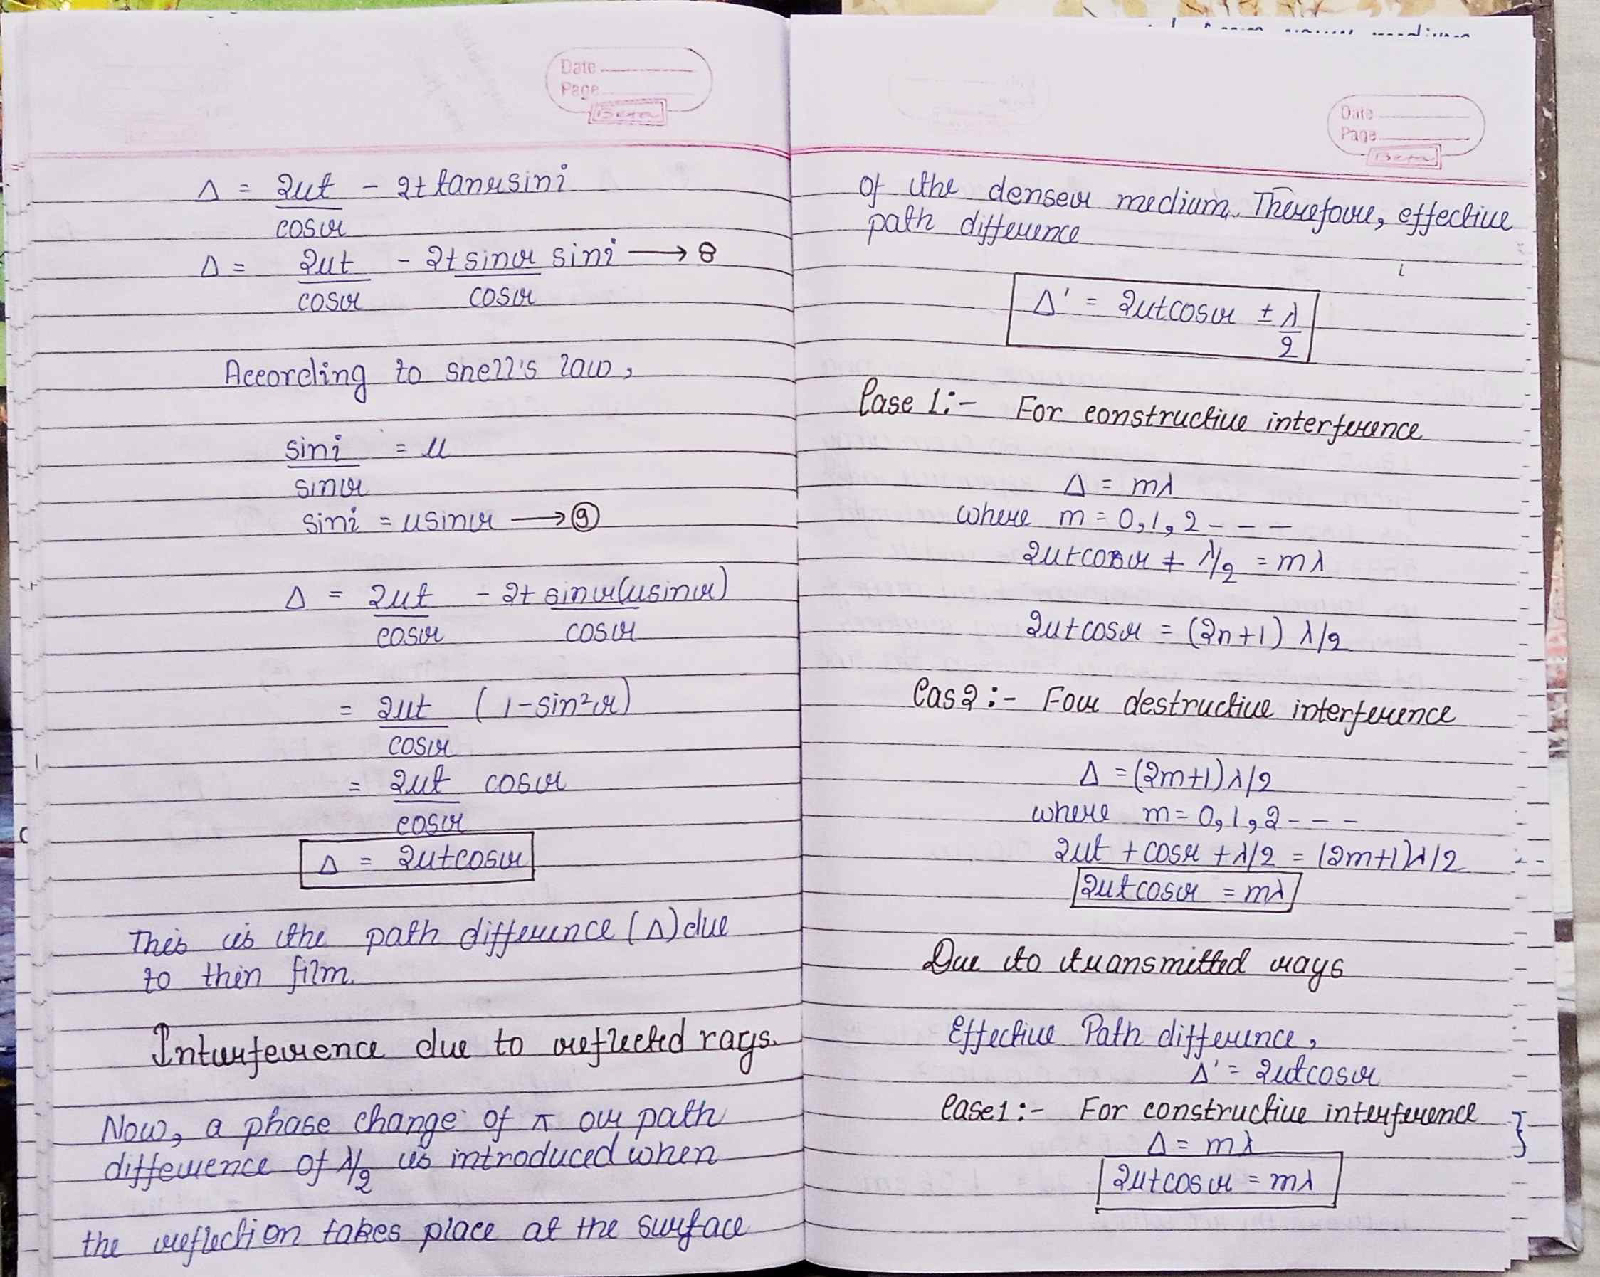 Date
Page
Δ = 2μt/cosr - 2t tanrsini
Δ = 2μt/cosr - 2t sinr/cosr sini ⟶ 8
According to snell's law,
sini/sinr = μ
sini = μsinr ⟶ ⑨
Δ = 2μt/cosr - 2t sinr(μsinr)/cosr
= 2μt/cosr (1-sin²r)
= 2μt/cosr cosr
Δ = 2μtcosr
This is the path difference (Δ) due
to thin film.
Interference due to reflected rays.
Now, a phase change of π or path
difference of λ/2 is introduced when
the reflection takes place at the surface
Date
Page
of the denser medium. Therefore, effective
path difference
Δ' = 2μtcosr ± λ/2
Case 1:- For constructive interference
Δ = mλ
where m = 0,1,2 - - -
2μtcosr + λ/2 = mλ
2μtcosr = (2n+1) λ/2
Cas2 :- For destructive interference
Δ = (2m+1)λ/2
where m = 0,1,2 - - -
2μt + cosr + λ/2 = (2m+1)λ/2
2μtcosr = mλ
Due to transmitted rays
Effective Path difference,
Δ' = 2μtcosr
Case1:- For constructive interference }
Δ = mλ
2μtcosr = mλ